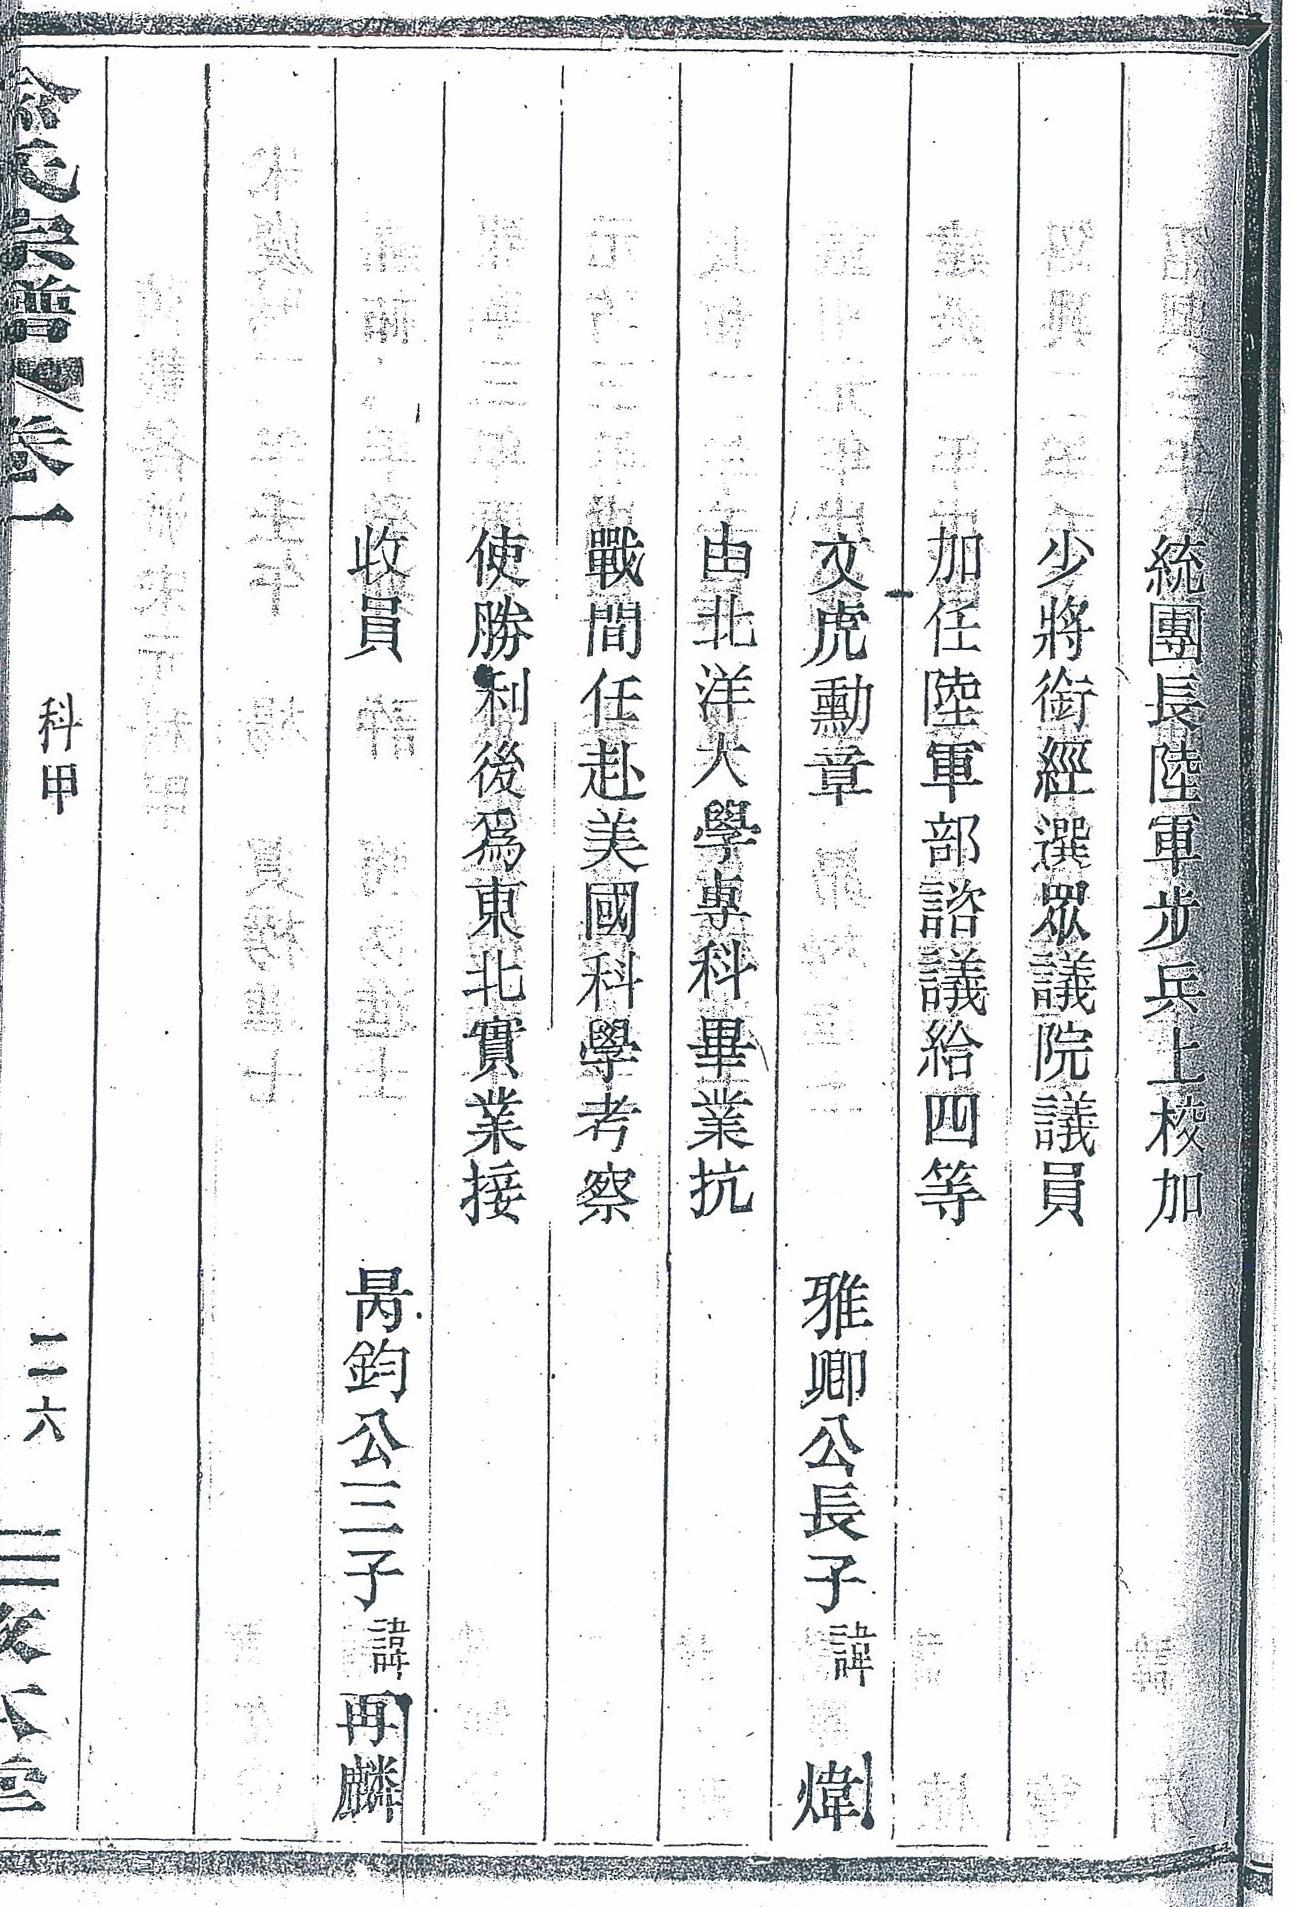 統團長陸軍步兵上棱加
少將銜經選眾議院議員
加任陸軍部諮議給四等
文虎勳章 雅卿公長子諱煒
由北洋大學專科畢業抗
戰間任赴美國科學考察
使勝利後爲東北實業接
收員 昺鈞公三子諱再麟
氏宗譜 卷一 科甲 二六